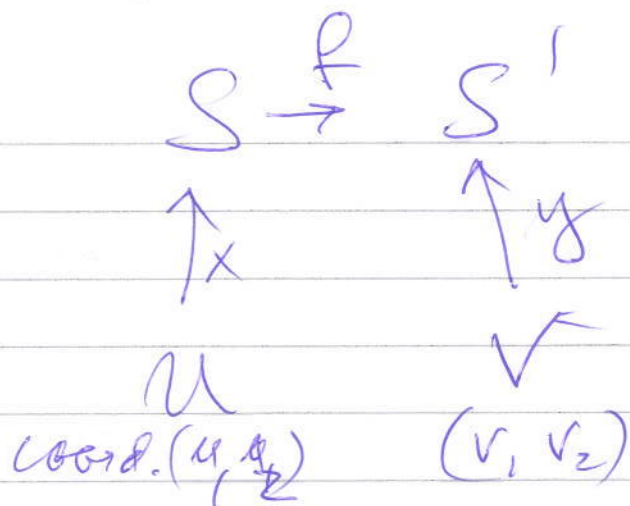 f
S → S'
↑ x ↑ y
U V
coord. (u₁, u₂) (v₁ v₂)